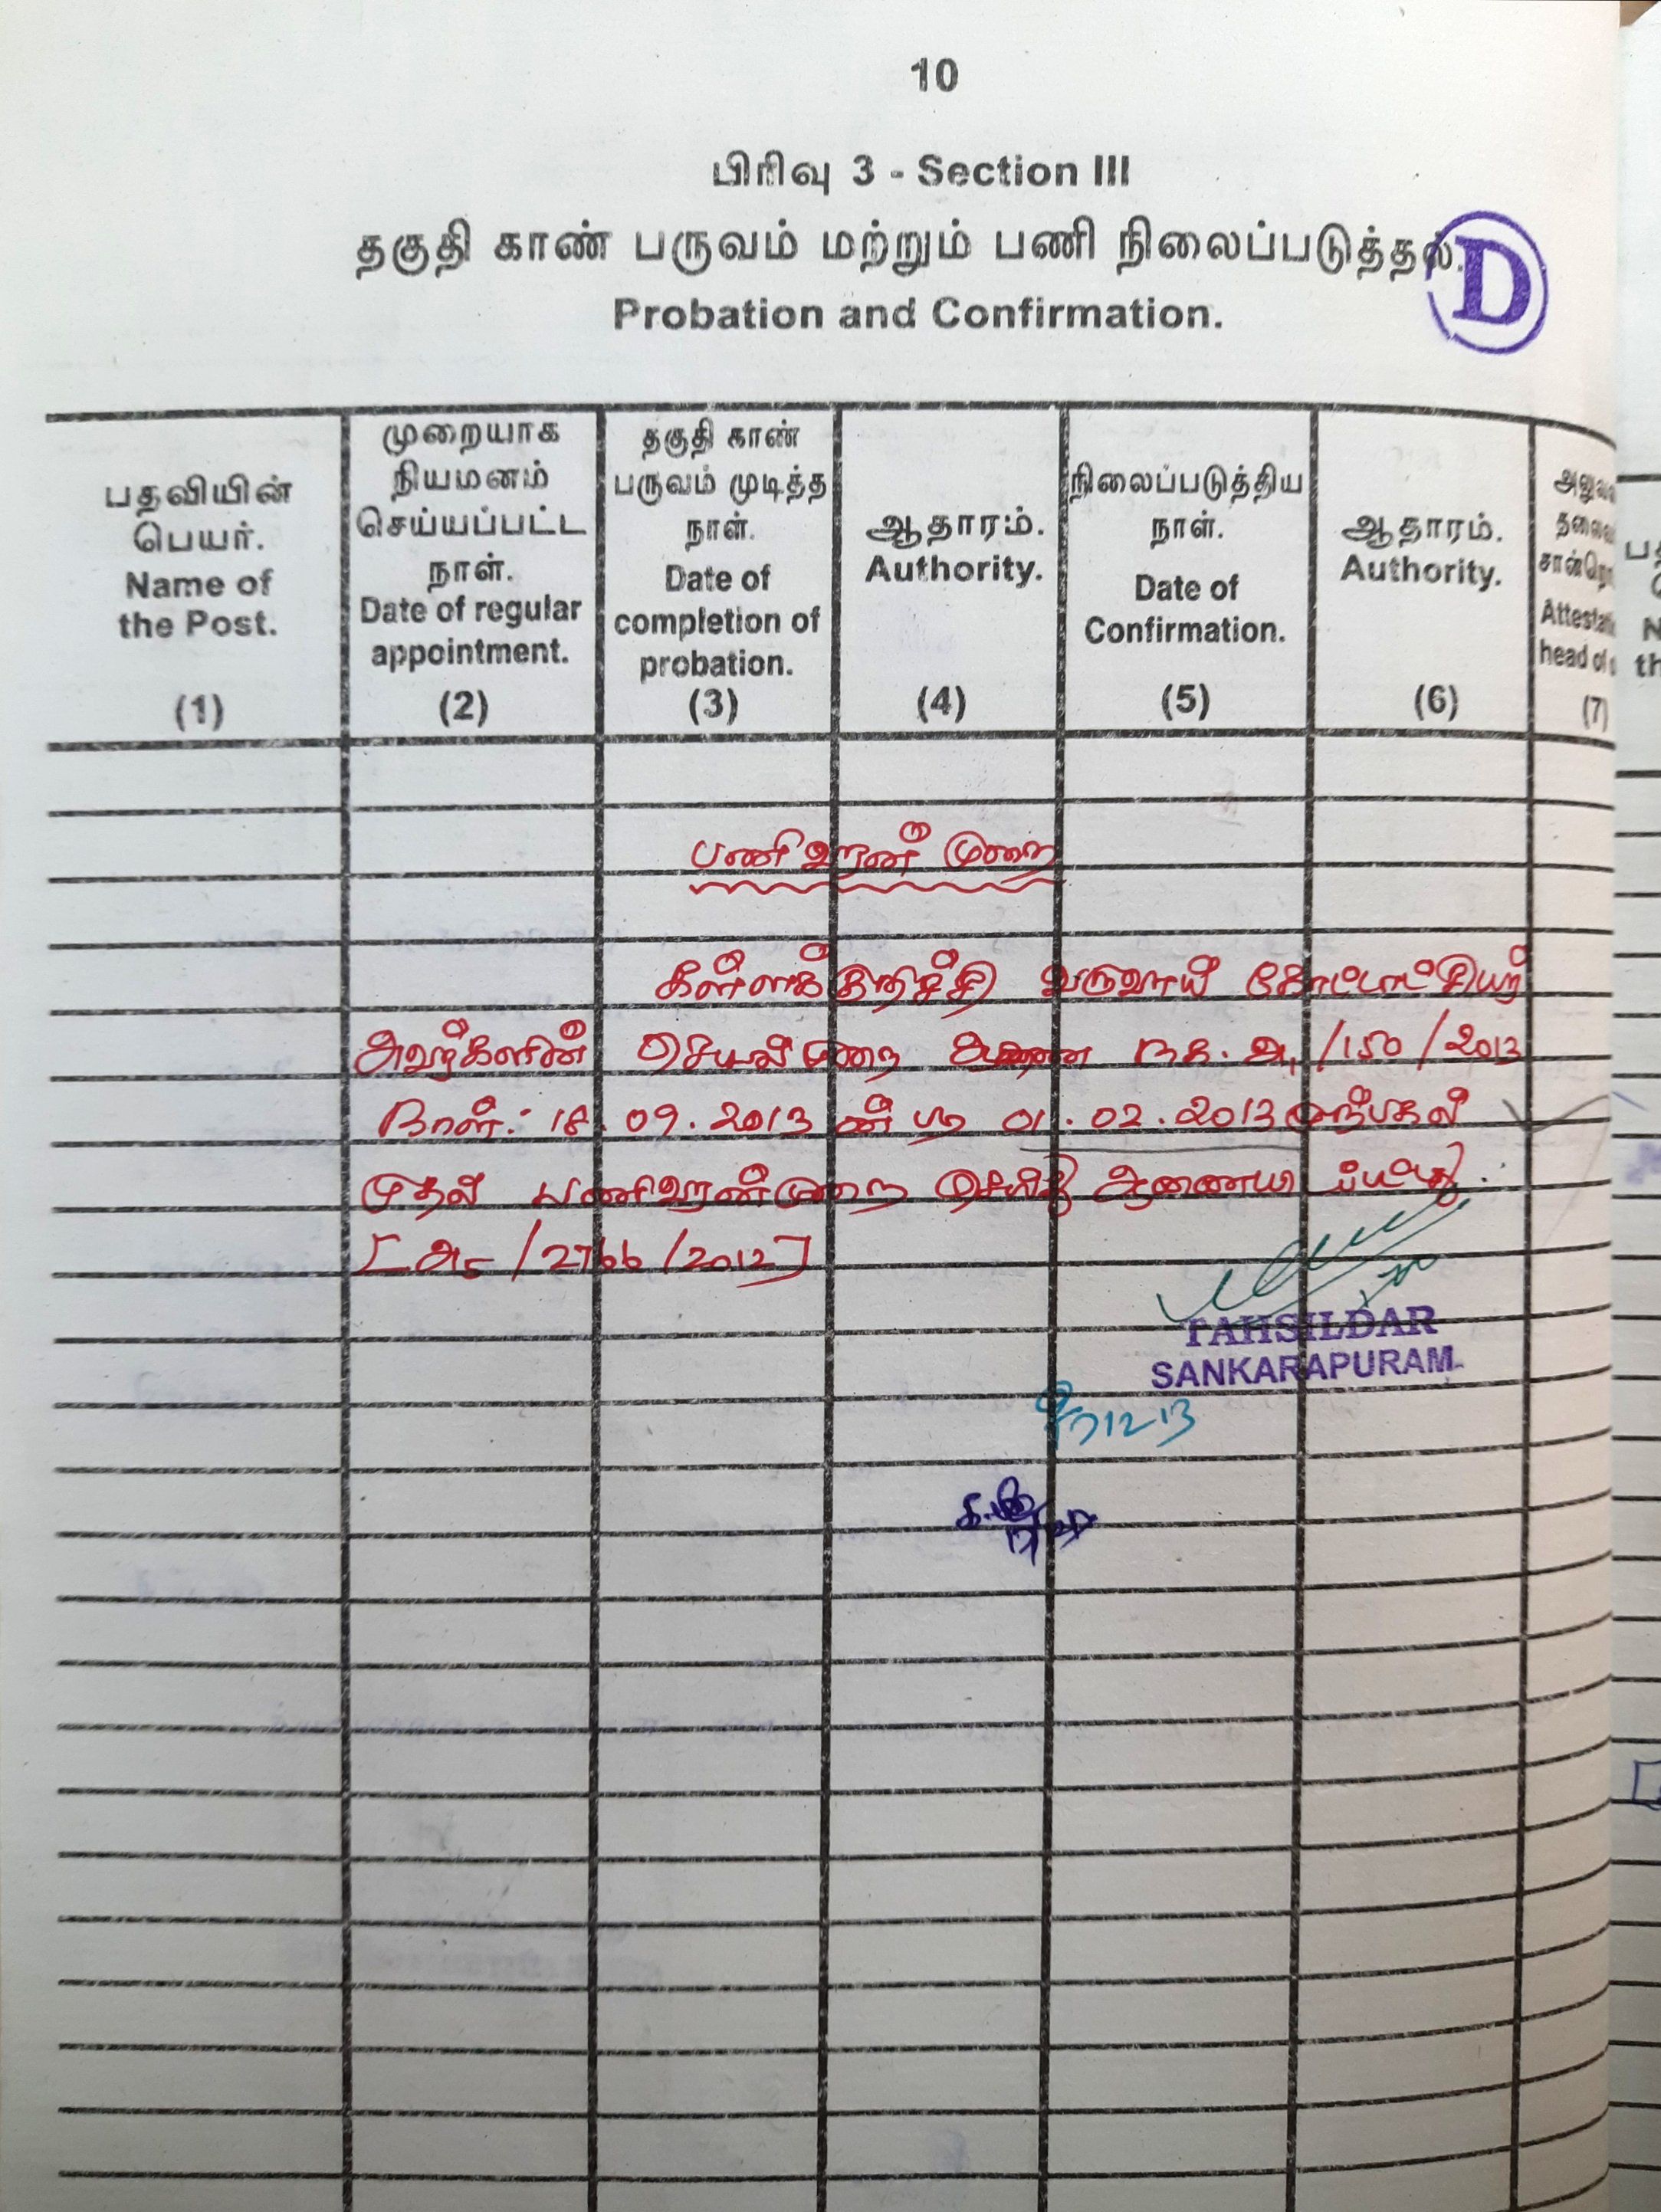 10
பிரிவு 3 - Section III
தகுதி காண் பருவம் மற்றும் பணி நிலைப்படுத்தல்.
Probation and Confirmation.
D
பதவியின்
பெயர்.
Name of
the Post.
(1)
முறையாக
நியமனம்
செய்யப்பட்ட
நாள்.
Date of regular
appointment.
(2)
தகுதி காண்
பருவம் முடித்த
நாள்.
Date of
completion of
probation.
(3)
ஆதாரம்.
Authority.
(4)
நிலைப்படுத்திய
நாள்.
Date of
Confirmation.
(5)
ஆதாரம்.
Authority.
(6)
head of
(7)
பணிவரன் முறை
கள்ளக்குறிச்சி வருவாய் கோட்டாட்சியர்
அவர்களின் செயல்முறை ஆணை ந.க. அ1/150/2013
நாள்: 18.09.2013 ன் படி 01.02.2013 முற்பகல்
முதல் பணிவரன்முறை செய்து ஆணையிடப்பட்டது.
[அ5/2766/2012]
TAHSILDAR
SANKARAPURAM